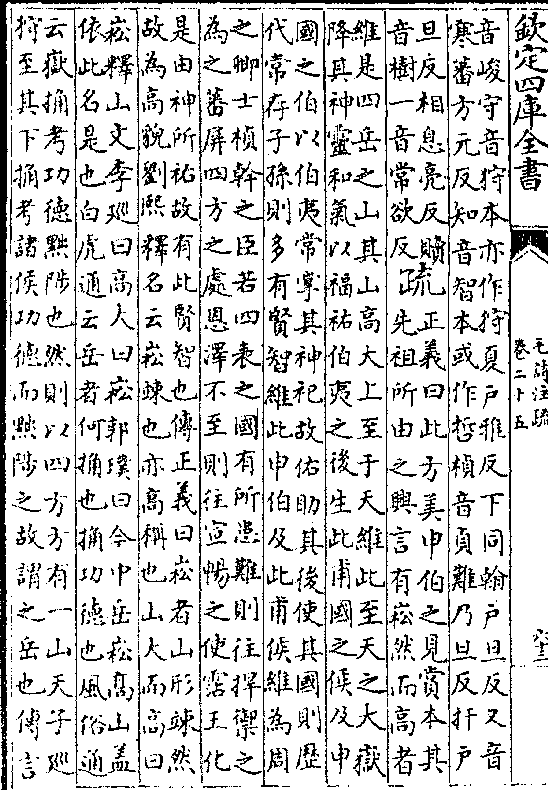 欽定四庫全書
毛詩注疏
卷二十五
音峻守音狩本亦作狩夏戸雅反下同翰戸旦反又音
寒蕃方元反知音智本或作哲楨音貞難乃旦反扞戸
旦反相息亮反贖
音樹一音常欲反疏正義曰此方美申伯之見賞本其
先祖所由之興言有崧然而高者
維是四岳之山其山高大上至于天維此至天之大嶽
降其神靈和氣以福祐伯夷之後生此甫國之侯及申
國之伯以伯夷常掌其神祀故佑助其後使其國則歴
代常存子孫則多有賢智維此申伯及此甫侯維為周
之卿士楨幹之臣若四表之國有所患難則往捍禦之
為之蕃屏四方之處恩澤不至則往宣暢之使霑王化
是由神所祐故有此賢智也傳正義曰崧者山形竦然
故為高貌劉熙釋名云崧竦也亦高稱也山大而高曰
崧釋山文李廵曰高大曰崧郭璞曰今中岳崧高山盖
依此名是也白虎通云岳者何捅也捅功德也風俗通
云嶽捅考功德黜陟也然則以四方方有一山天子廵
狩至其下捅考諸侯功德而黜陟之故謂之岳也傳言